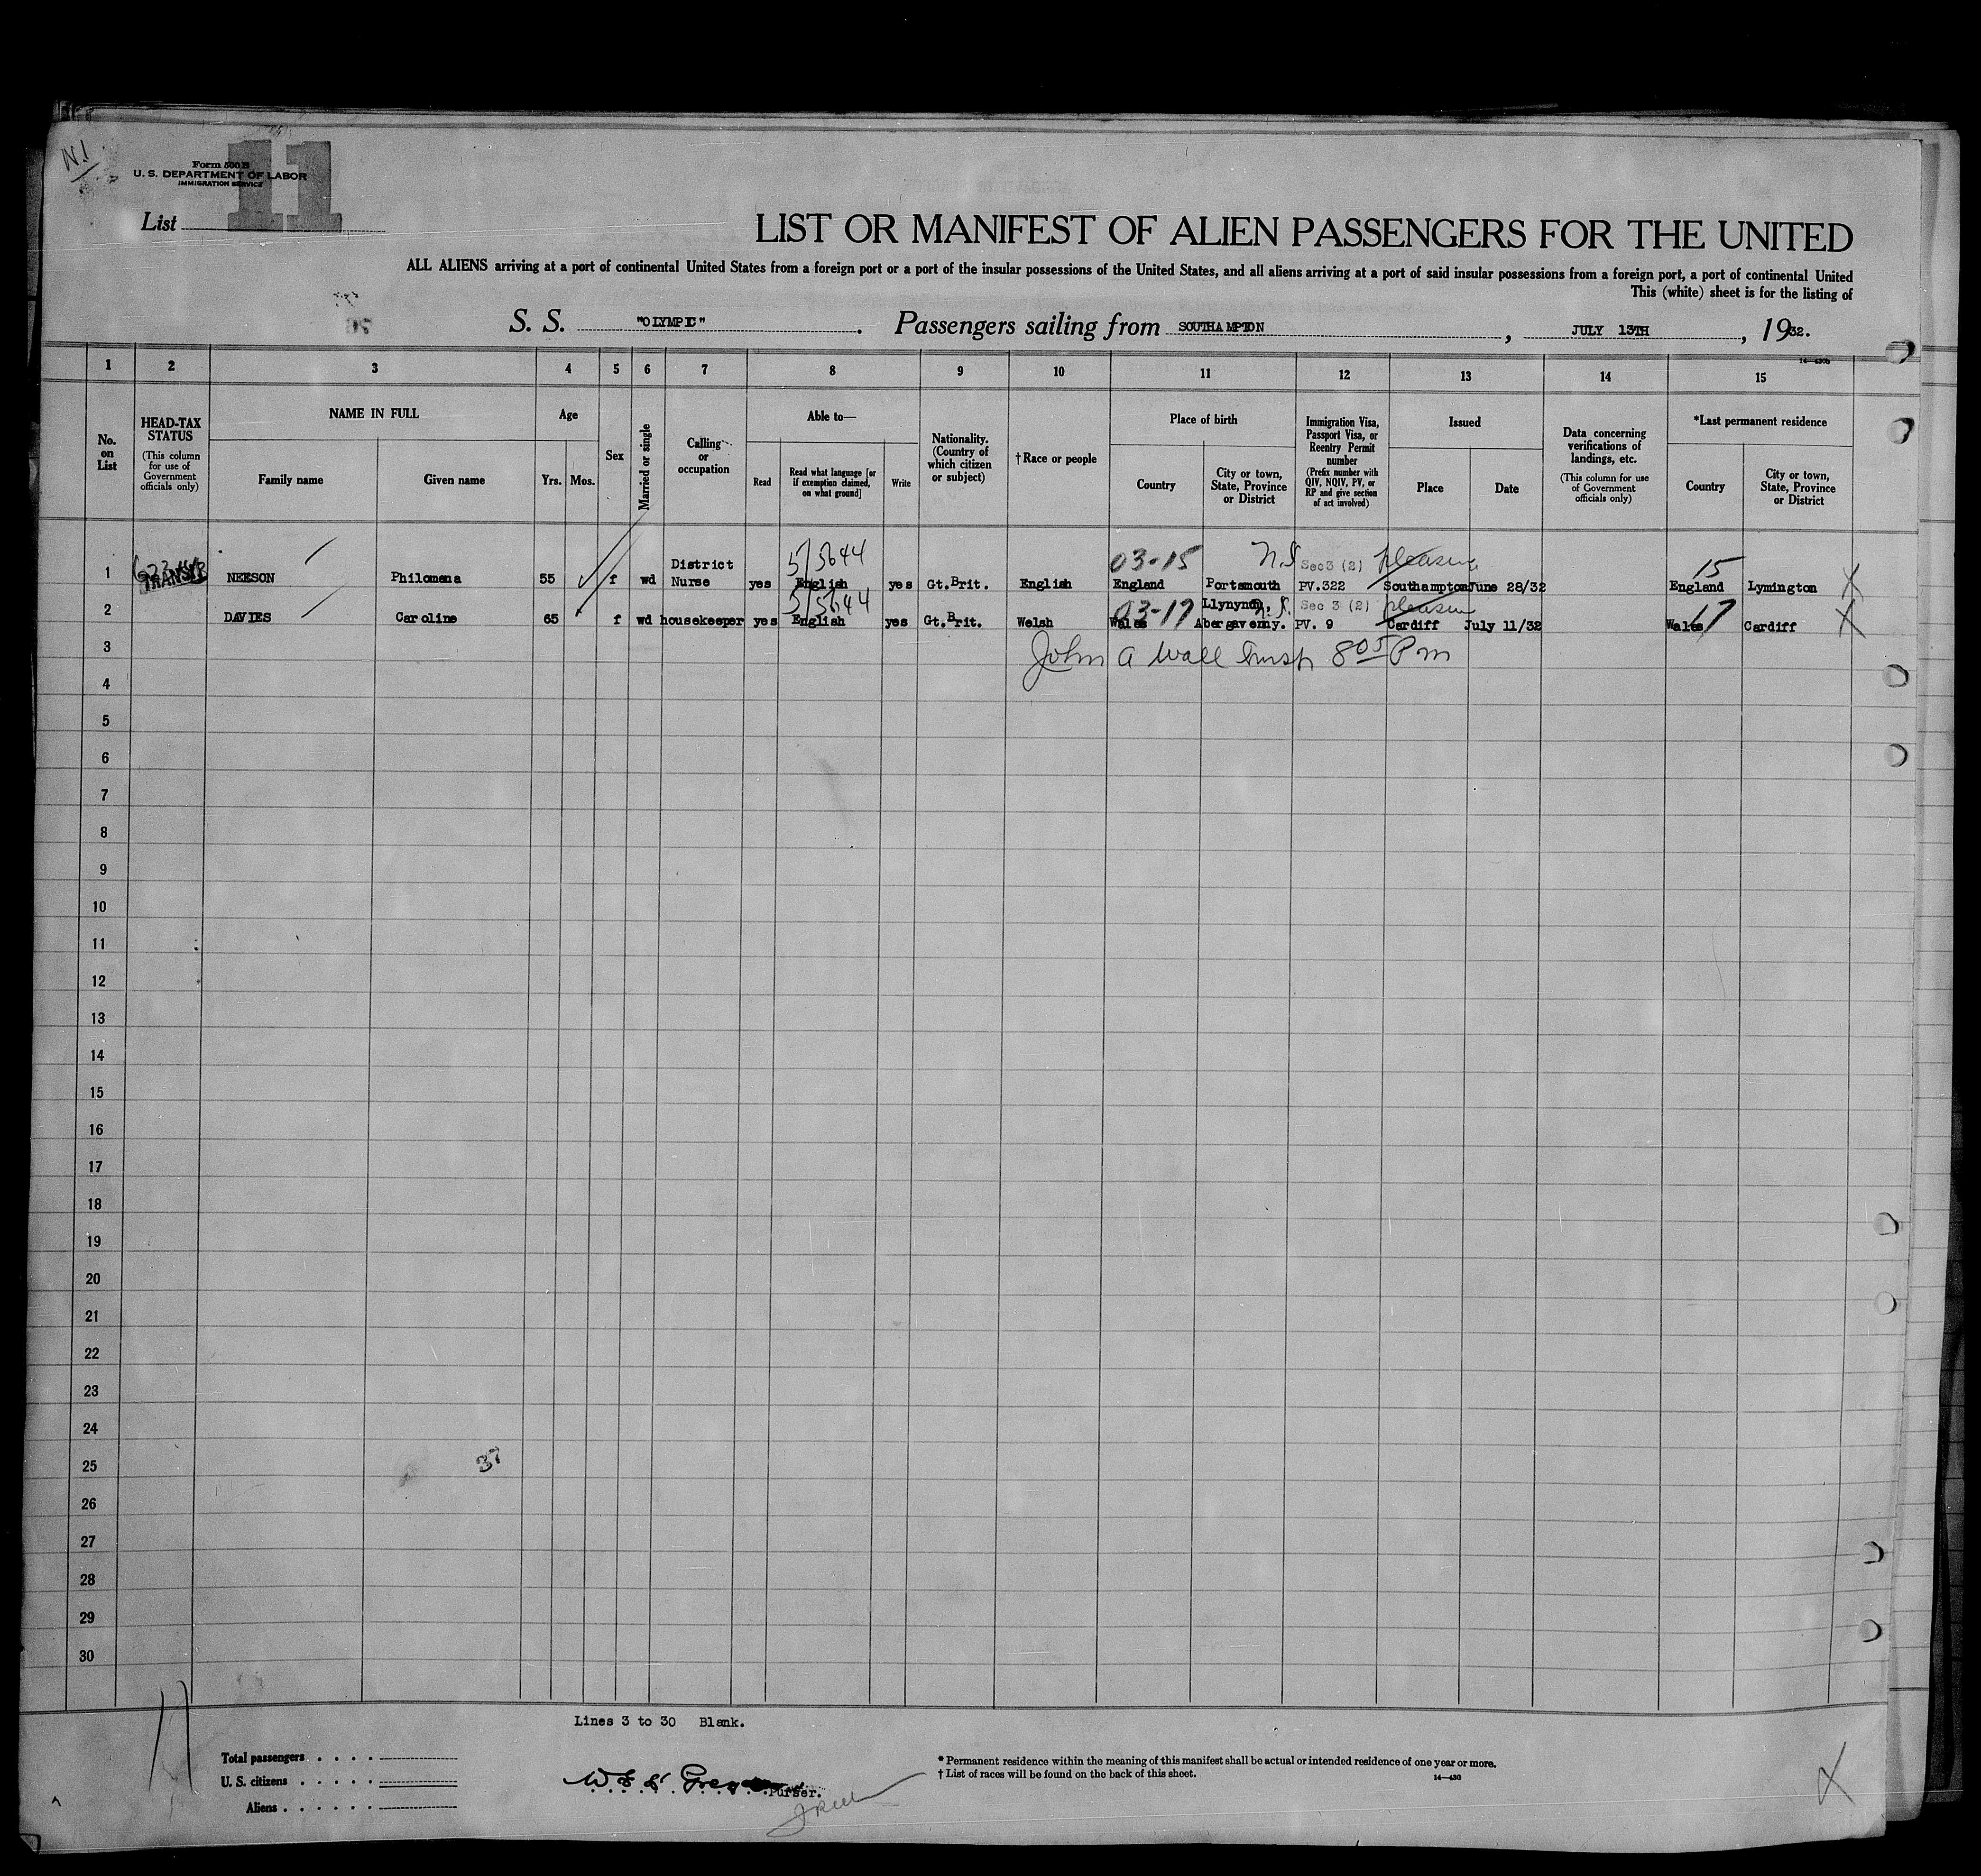 N.1
Form 500 B
U. S. DEPARTMENT OF LABOR
IMMIGRATION SERVICE
List 11
LIST OR MANIFEST OF ALIEN PASSENGERS FOR THE UNITED
ALL ALIENS arriving at a port of continental United States from a foreign port or a port of the insular possessions of the United States, and all aliens arriving at a port of said insular possessions from a foreign port, a port of continental United
This (white) sheet is for the listing of
S. S. "OLYMPIC". Passengers sailing from SOUTHAMPTON, JULY 13TH, 1932.
14—430b
1 2 3 4 5 6 7 8 9 10 11 12 13 14 15
No. on List
HEAD-TAX STATUS
(This column for use of Government officials only)
NAME IN FULL
Family name Given name
Age
Yrs. Mos.
Sex
Married or single
Calling or occupation
Able to—
Read Read what language [or if exemption claimed, on what ground] Write
Nationality. (Country of which citizen or subject)
†Race or people
Place of birth
Country City or town, State, Province or District
Immigration Visa, Passport Visa, or Reentry Permit number
(Prefix number with QIV, NQIV, PV, or RP and give section of act involved)
Issued
Place Date
Data concerning verifications of landings, etc.
(This column for use of Government officials only)
*Last permanent residence
Country City or town, State, Province or District
5/5644 03-15 Sec 3 (2) pleasure 15
1 TRANSIT NEESON Philomena 55 f wd District Nurse yes English yes Gt.Brit. English England Portsmouth PV.322 Southampton June 28/32 England Lymington
5/5644 03-17 Sec 3 (2) pleasure 17
2 DAVIES Caroline 65 f wd housekeeper yes English yes Gt.Brit. Welsh Wales Abergavenny. PV. 9 Cardiff July 11/32 Wales Cardiff
3 John A Wall Insp 8 05 P m
4
5
6
7
8
9
10
11
12
13
14
15
16
17
18
19
20
21
22
23
24
25 37
26
27
28
29
30
Lines 3 to 30 Blank.
Total passengers
U. S. citizens
Aliens
Purser.
* Permanent residence within the meaning of this manifest shall be actual or intended residence of one year or more.
† List of races will be found on the back of this sheet.
14—430